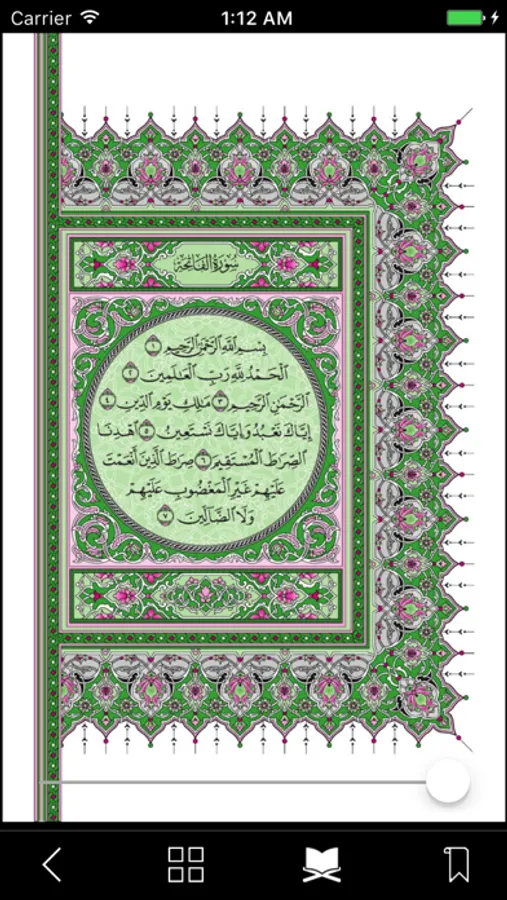 Carrier 1:12 AM
سُورَةُ الفَاتِحَةِ
بِسْمِ ٱللَّهِ ٱلرَّحْمَٰنِ ٱلرَّحِيمِ ١
ٱلْحَمْدُ لِلَّهِ رَبِّ ٱلْعَٰلَمِينَ ٢
ٱلرَّحْمَٰنِ ٱلرَّحِيمِ ٣ مَٰلِكِ يَوْمِ ٱلدِّينِ ٤
إِيَّاكَ نَعْبُدُ وَإِيَّاكَ نَسْتَعِينُ ٥ ٱهْدِنَا
ٱلصِّرَٰطَ ٱلْمُسْتَقِيمَ ٦ صِرَٰطَ ٱلَّذِينَ أَنْعَمْتَ
عَلَيْهِمْ غَيْرِ ٱلْمَغْضُوبِ عَلَيْهِمْ
وَلَا ٱلضَّآلِّينَ ٧